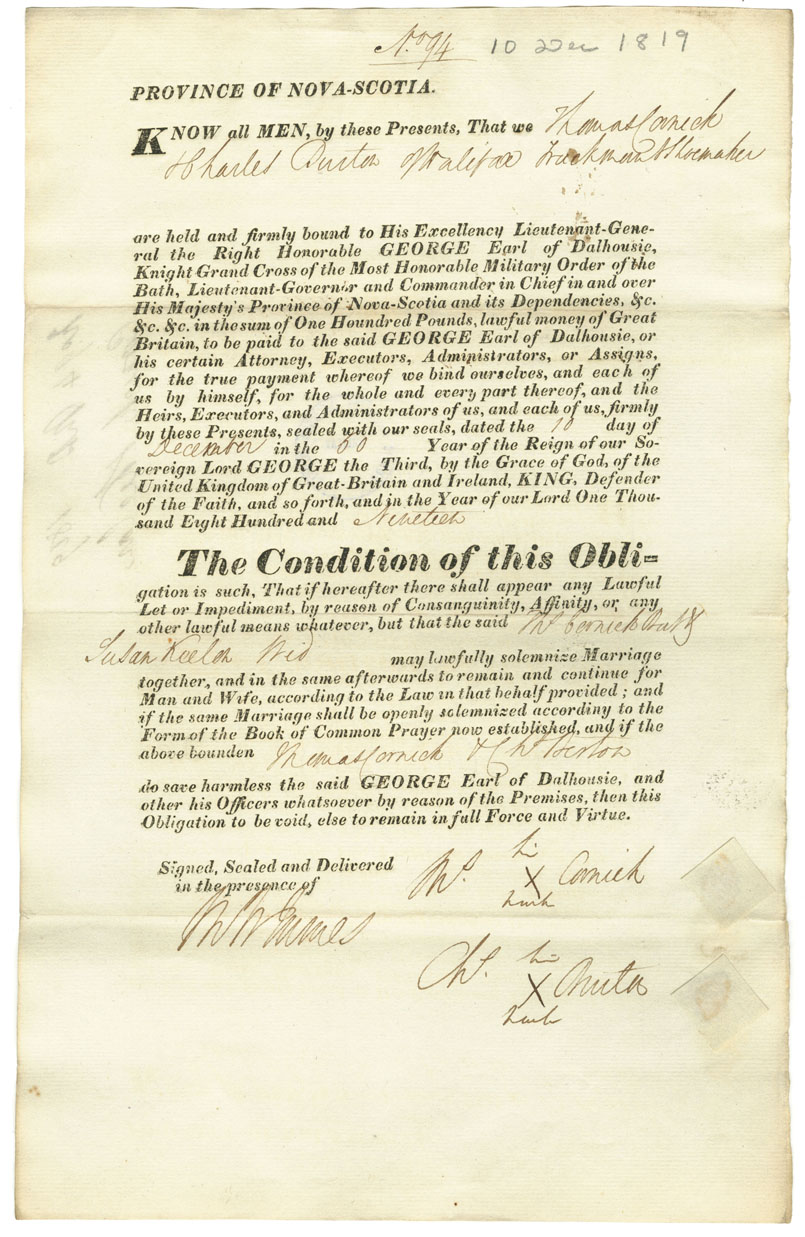 No 94 10 Dec 1819
PROVINCE OF NOVA-SCOTIA.
KNOW all MEN, by these Presents, That we Thomas Cornick
& Charles Burton of Halifax Truckman & Shoemaker
are held and firmly bound to His Excellency Lieutenant-Gene-
ral the Right Honorable GEORGE Earl of Dalhousie,
Knight Grand Cross of the Most Honorable Military Order of the
Bath, Lieutenant-Governor and Commander in Chief in and over
His Majesty's Province of Nova-Scotia and its Dependencies, &c.
&c. &c. in the sum of One Houndred Pounds, lawful money of Great
Britain, to be paid to the said GEORGE Earl of Dalhousie, or
his certain Attorney, Executors, Administrators, or Assigns,
for the true payment whereof we bind ourselves, and each of
us by himself, for the whole and every part thereof, and the
Heirs, Executors, and Administrators of us, and each of us, firmly
by these Presents, sealed with our seals, dated the 10 day of
December in the 60 Year of the Reign of our So-
vereign Lord GEORGE the Third, by the Grace of God, of the
United Kingdom of Great-Britain and Ireland, KING, Defender
of the Faith, and so forth, and in the Year of our Lord One Thou-
sand Eight Hundred and Nineteen
The Condition of this Obli-
gation is such, That if hereafter there shall appear any Lawful
Let or Impediment, by reason of Consanguinity, Affinity, or any
other lawful means whatever, but that the said Ths Cornick &
Susan Wid may lawfully solemnize Marriage
together, and in the same afterwards to remain and continue for
Man and Wife, according to the Law in that behalf provided; and
if the same Marriage shall be openly solemnized accordiny to the
Form of the Book of Common Prayer now established, and if the
above bounden Thomas Cornick & Chs Burton
do save harmless the said GEORGE Earl of Dalhousie, and
other his Officers whatsoever by reason of the Premises, then this
Obligation to be void, else to remain in full Force and Virtue.
Signed, Sealed and Delivered
in the presence of
his
Ths. X Cornick
mark
his
Chs. X Burton
mark